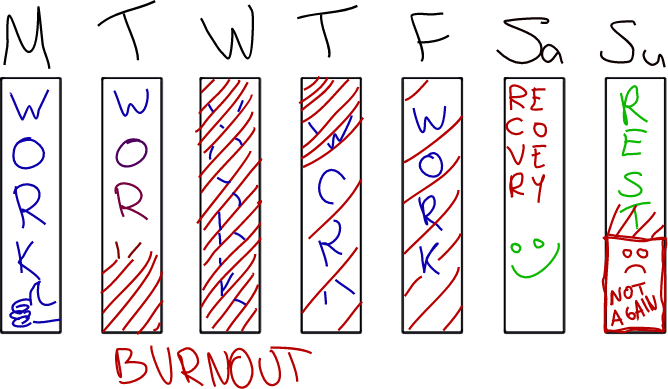 M T W T F Sa Su
WORK
WOR
WORK
RE
CO
VE
RY
REST
NOT
AGAIN
BURNOUT